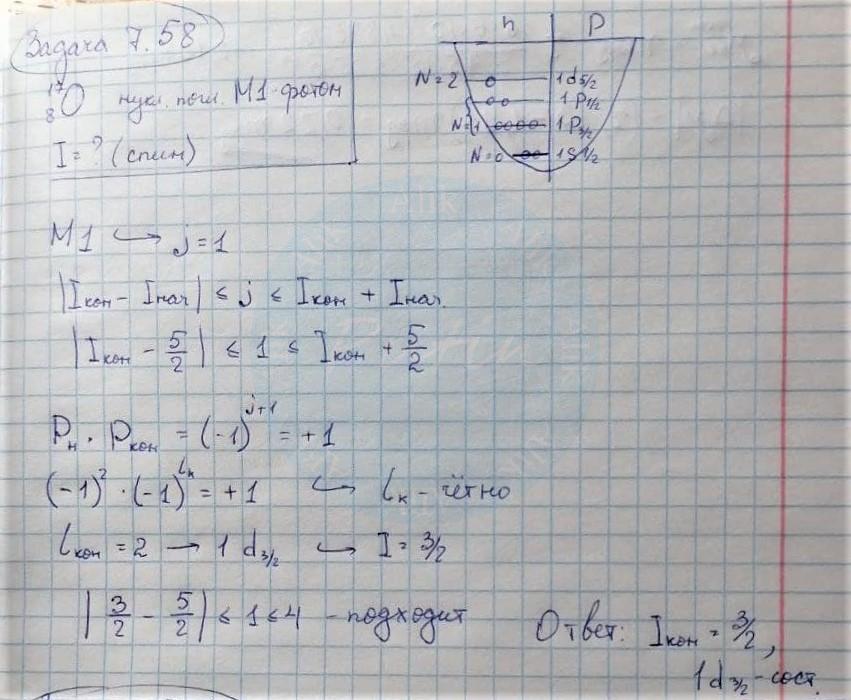 Задача 7.58
¹⁷₈O нукл. погл. M1-фотон
I = ? (спин)
n P
N=2 1d5/2
1p1/2
N=1 1p3/2
N=0 1s1/2
M1 ↪ j=1
|Iкон - Iнач| ≤ j ≤ Iкон + Iнач.
|Iкон - 5/2| ≤ 1 ≤ Iкон + 5/2
Pн · Pкон = (-1)^(j+1) = +1
(-1)² · (-1)^(lк) = +1 ↪ lк - чётно
lкон = 2 → 1d3/2 ↪ I = 3/2
|3/2 - 5/2| ≤ 1 ≤ 4 - подходит
Ответ: Iкон = 3/2,
1d3/2-сост.